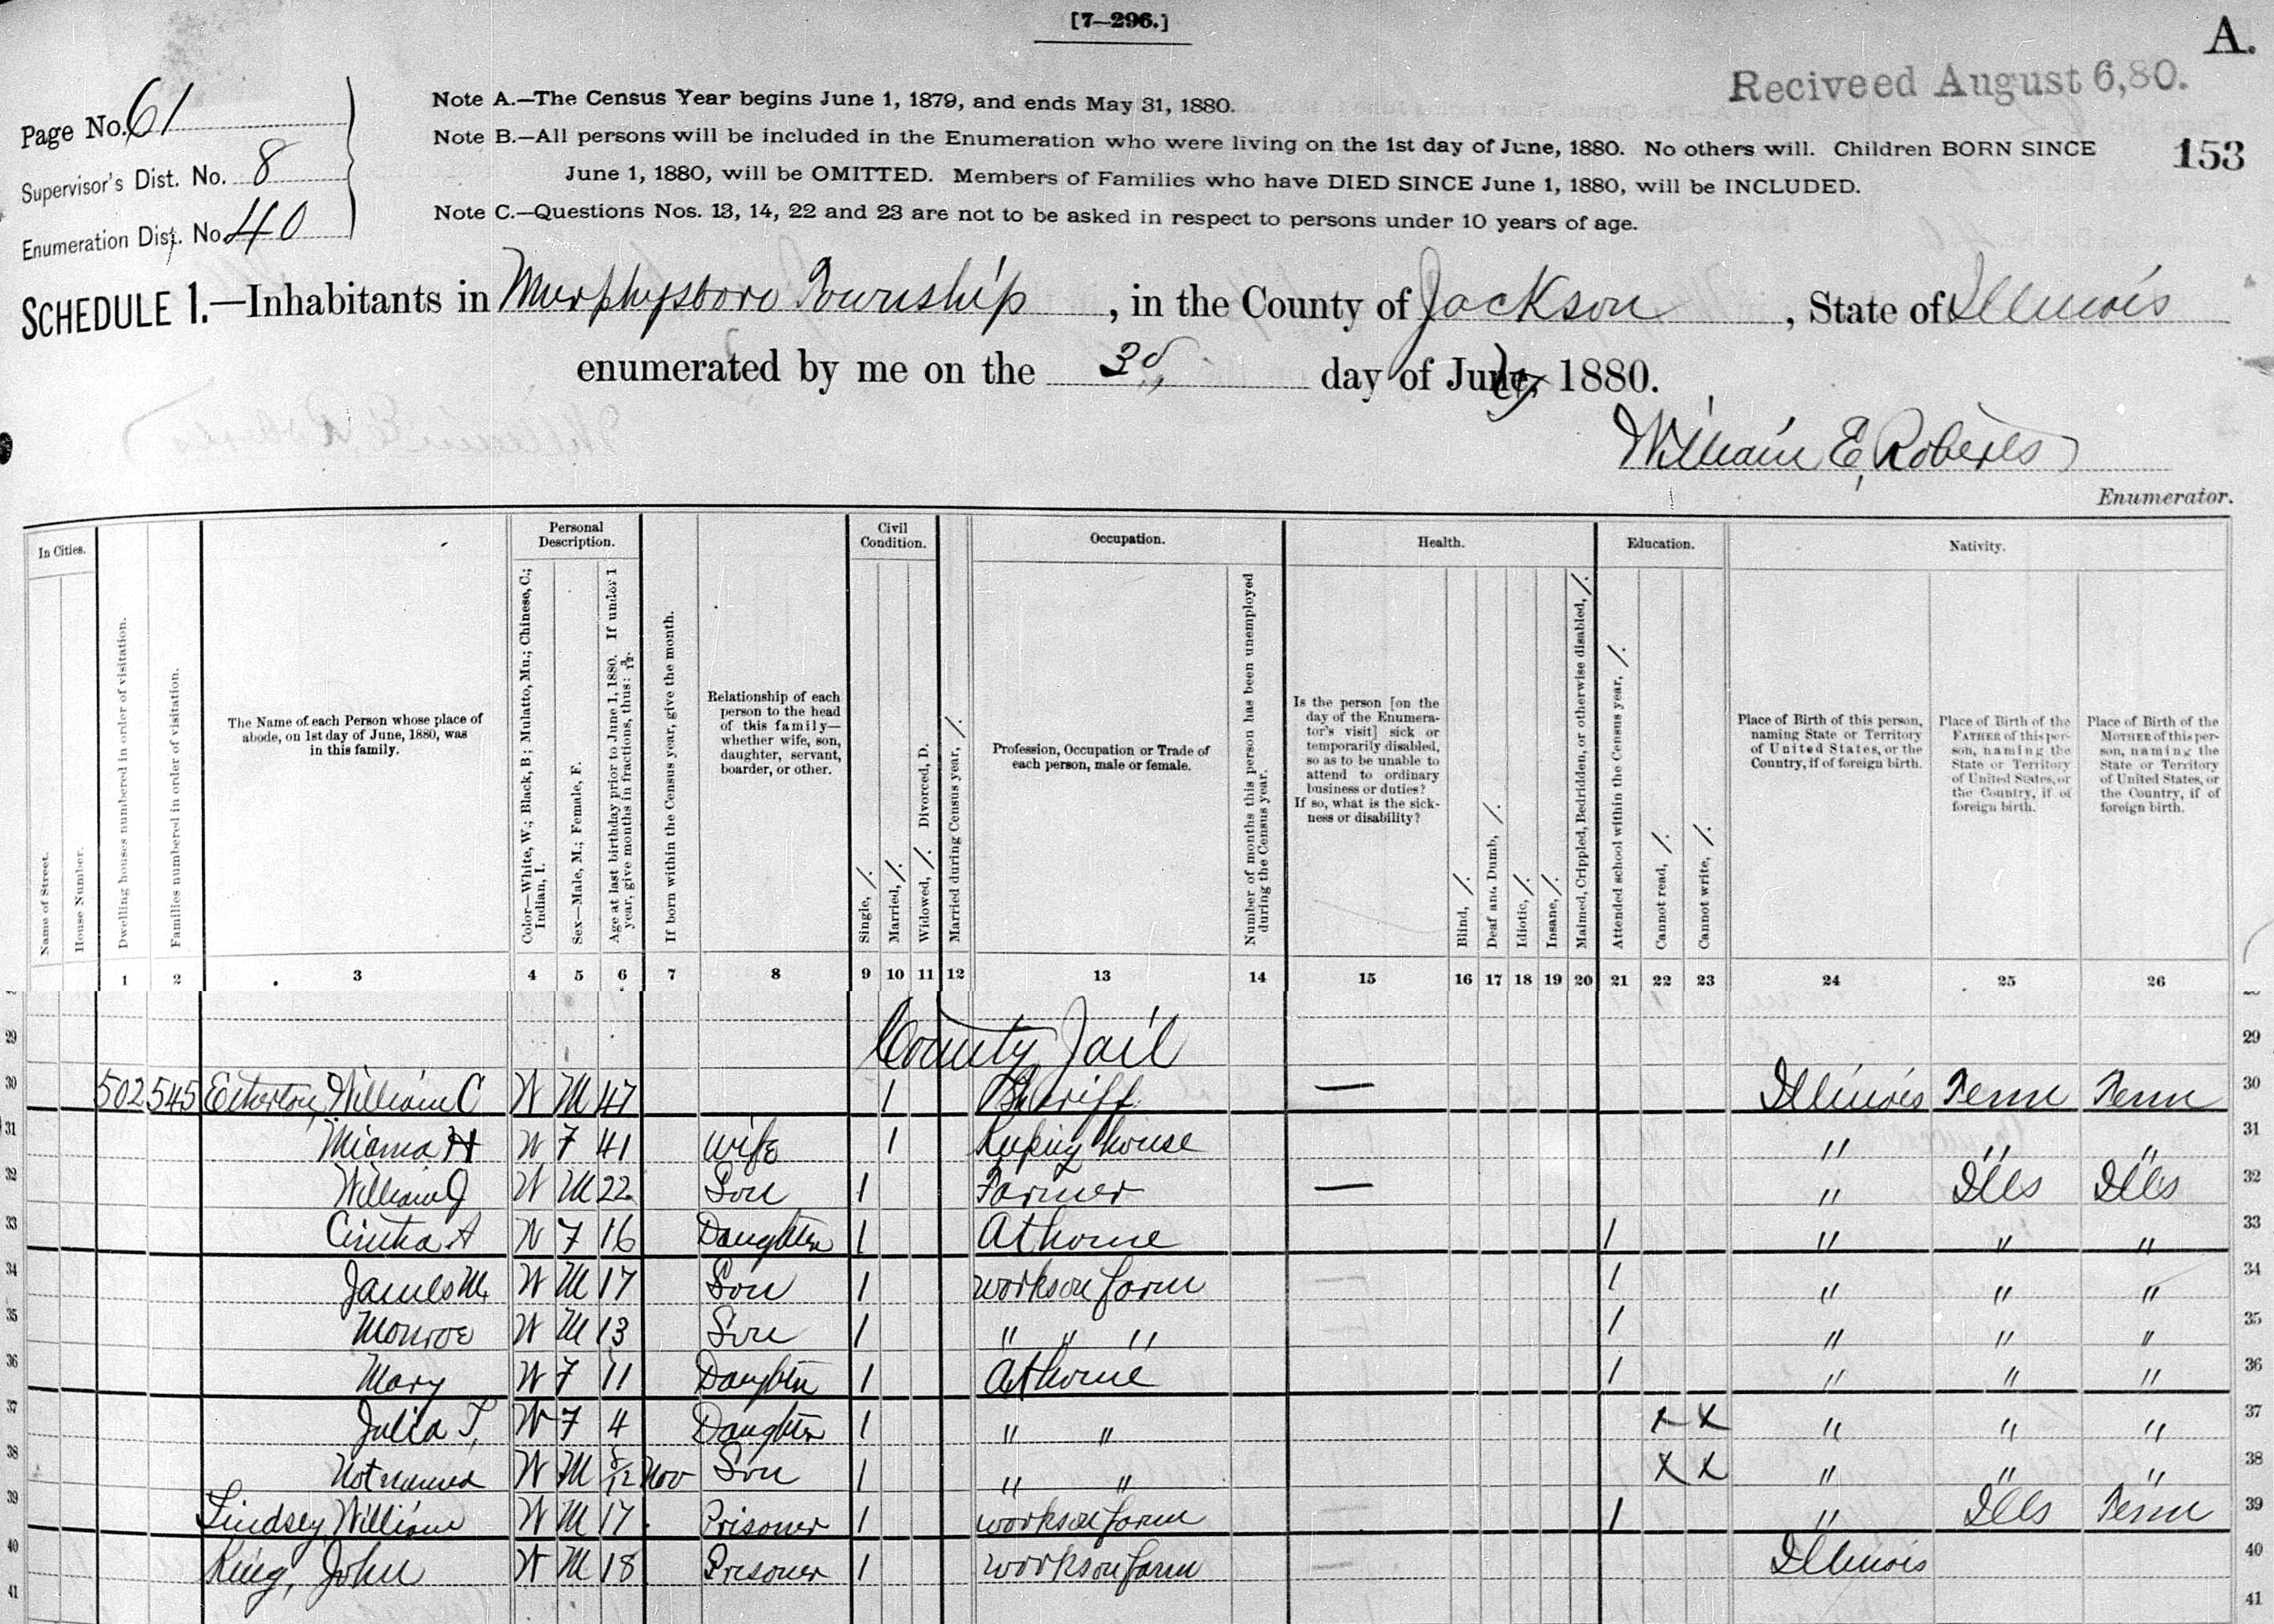 [7—296.]
A.
Reciveed August 6,80.
153
Page No. 61
Supervisor's Dist. No. 8
Enumeration Dist. No. 40
Note A.—The Census Year begins June 1, 1879, and ends May 31, 1880.
Note B.—All persons will be included in the Enumeration who were living on the 1st day of June, 1880. No others will. Children BORN SINCE
June 1, 1880, will be OMITTED. Members of Families who have DIED SINCE June 1, 1880, will be INCLUDED.
Note C.—Questions Nos. 13, 14, 22 and 23 are not to be asked in respect to persons under 10 years of age.
SCHEDULE 1.—Inhabitants in Murphysboro Township, in the County of Jackson, State of Illinois
enumerated by me on the 3d, day of July, 1880.
William E. Roberts
Enumerator.
In Cities.
Name of Street.
House Number.
Dwelling houses numbered in order of visitation.
Families numbered in order of visitation.
The Name of each Person whose place of
abode, on 1st day of June, 1880, was
in this family.
Personal
Description.
Color—White, W.; Black, B; Mulato, Mu.; Chinese, C.;
Indian, I.
Sex—Male, M.; Female, F.
Age at last birthday prior to June 1, 1880. If under 1
year, give months in fractions, thus: 3/12.
If born within the Census year, give the month.
Relationship of each
person to the head
of this family—
whether wife, son,
daughter, servant,
boarder, or other.
Civil
Condition.
Single, /.
Married, /.
Widowed, /. Divorced, D.
Married during Census year, /.
Occupation.
Profession, Occupation or Trade of
each person, male or female.
Number of months this person has been unemployed
during the Census year.
Health.
Is the person [on the
day of the Enumera-
tor's visit] sick or
temporarily disabled,
so as to be unable to
attend to ordinary
business or duties?
If so, what is the sick-
ness or disability?
Blind, /.
Deaf and Dumb, /.
Idiotic, /.
Insane, /.
Maimed, Crippled, Bedridden, or otherwise disabled, /.
Education.
Attended school within the Census year, /.
Cannot read, /.
Cannot write, /.
Nativity.
Place of Birth of this person,
naming State or Territory
of United States, or the
Country, if of foreign birth.
Place of Birth of the
FATHER of this per-
son, naming the
State or Territory
of United States, or
the Country, if of
foreign birth.
Place of Birth of the
MOTHER of this per-
son, naming the
State or Territory
of United States, or
the Country, if of
foreign birth.
1 2 3 4 5 6 7 8 9 10 11 12 13 14 15 16 17 18 19 20 21 22 23 24 25 26
29 County Jail 29
30 502 545 Etherton, William C W M 47 1 Sheriff — Illinois Tenn Tenn 30
31 Miama H W F 41 wife 1 Keeping house " " " 31
32 William J W M 22 Son 1 Farmer — " Ills Ills 32
33 Cintha A W F 16 Daughter 1 At home 1 " " " 33
34 James M. W M 17 Son 1 works on farm 1 " " " 34
35 Monroe W M 13 Son 1 " " " 1 " " " 35
36 Mary W F 11 Daughter 1 At home 1 " " " 36
37 Julia T, W F 4 Daughter 1 " " x x " " " 37
38 Not named W M 8/12 Nov Son 1 " " x x " " " 38
39 Lindsey William W M 17 Prisoner 1 works on farm 1 " Ills Tenn 39
40 King, John W M 18 Prisoner 1 works on farm Illinois 40
41 41